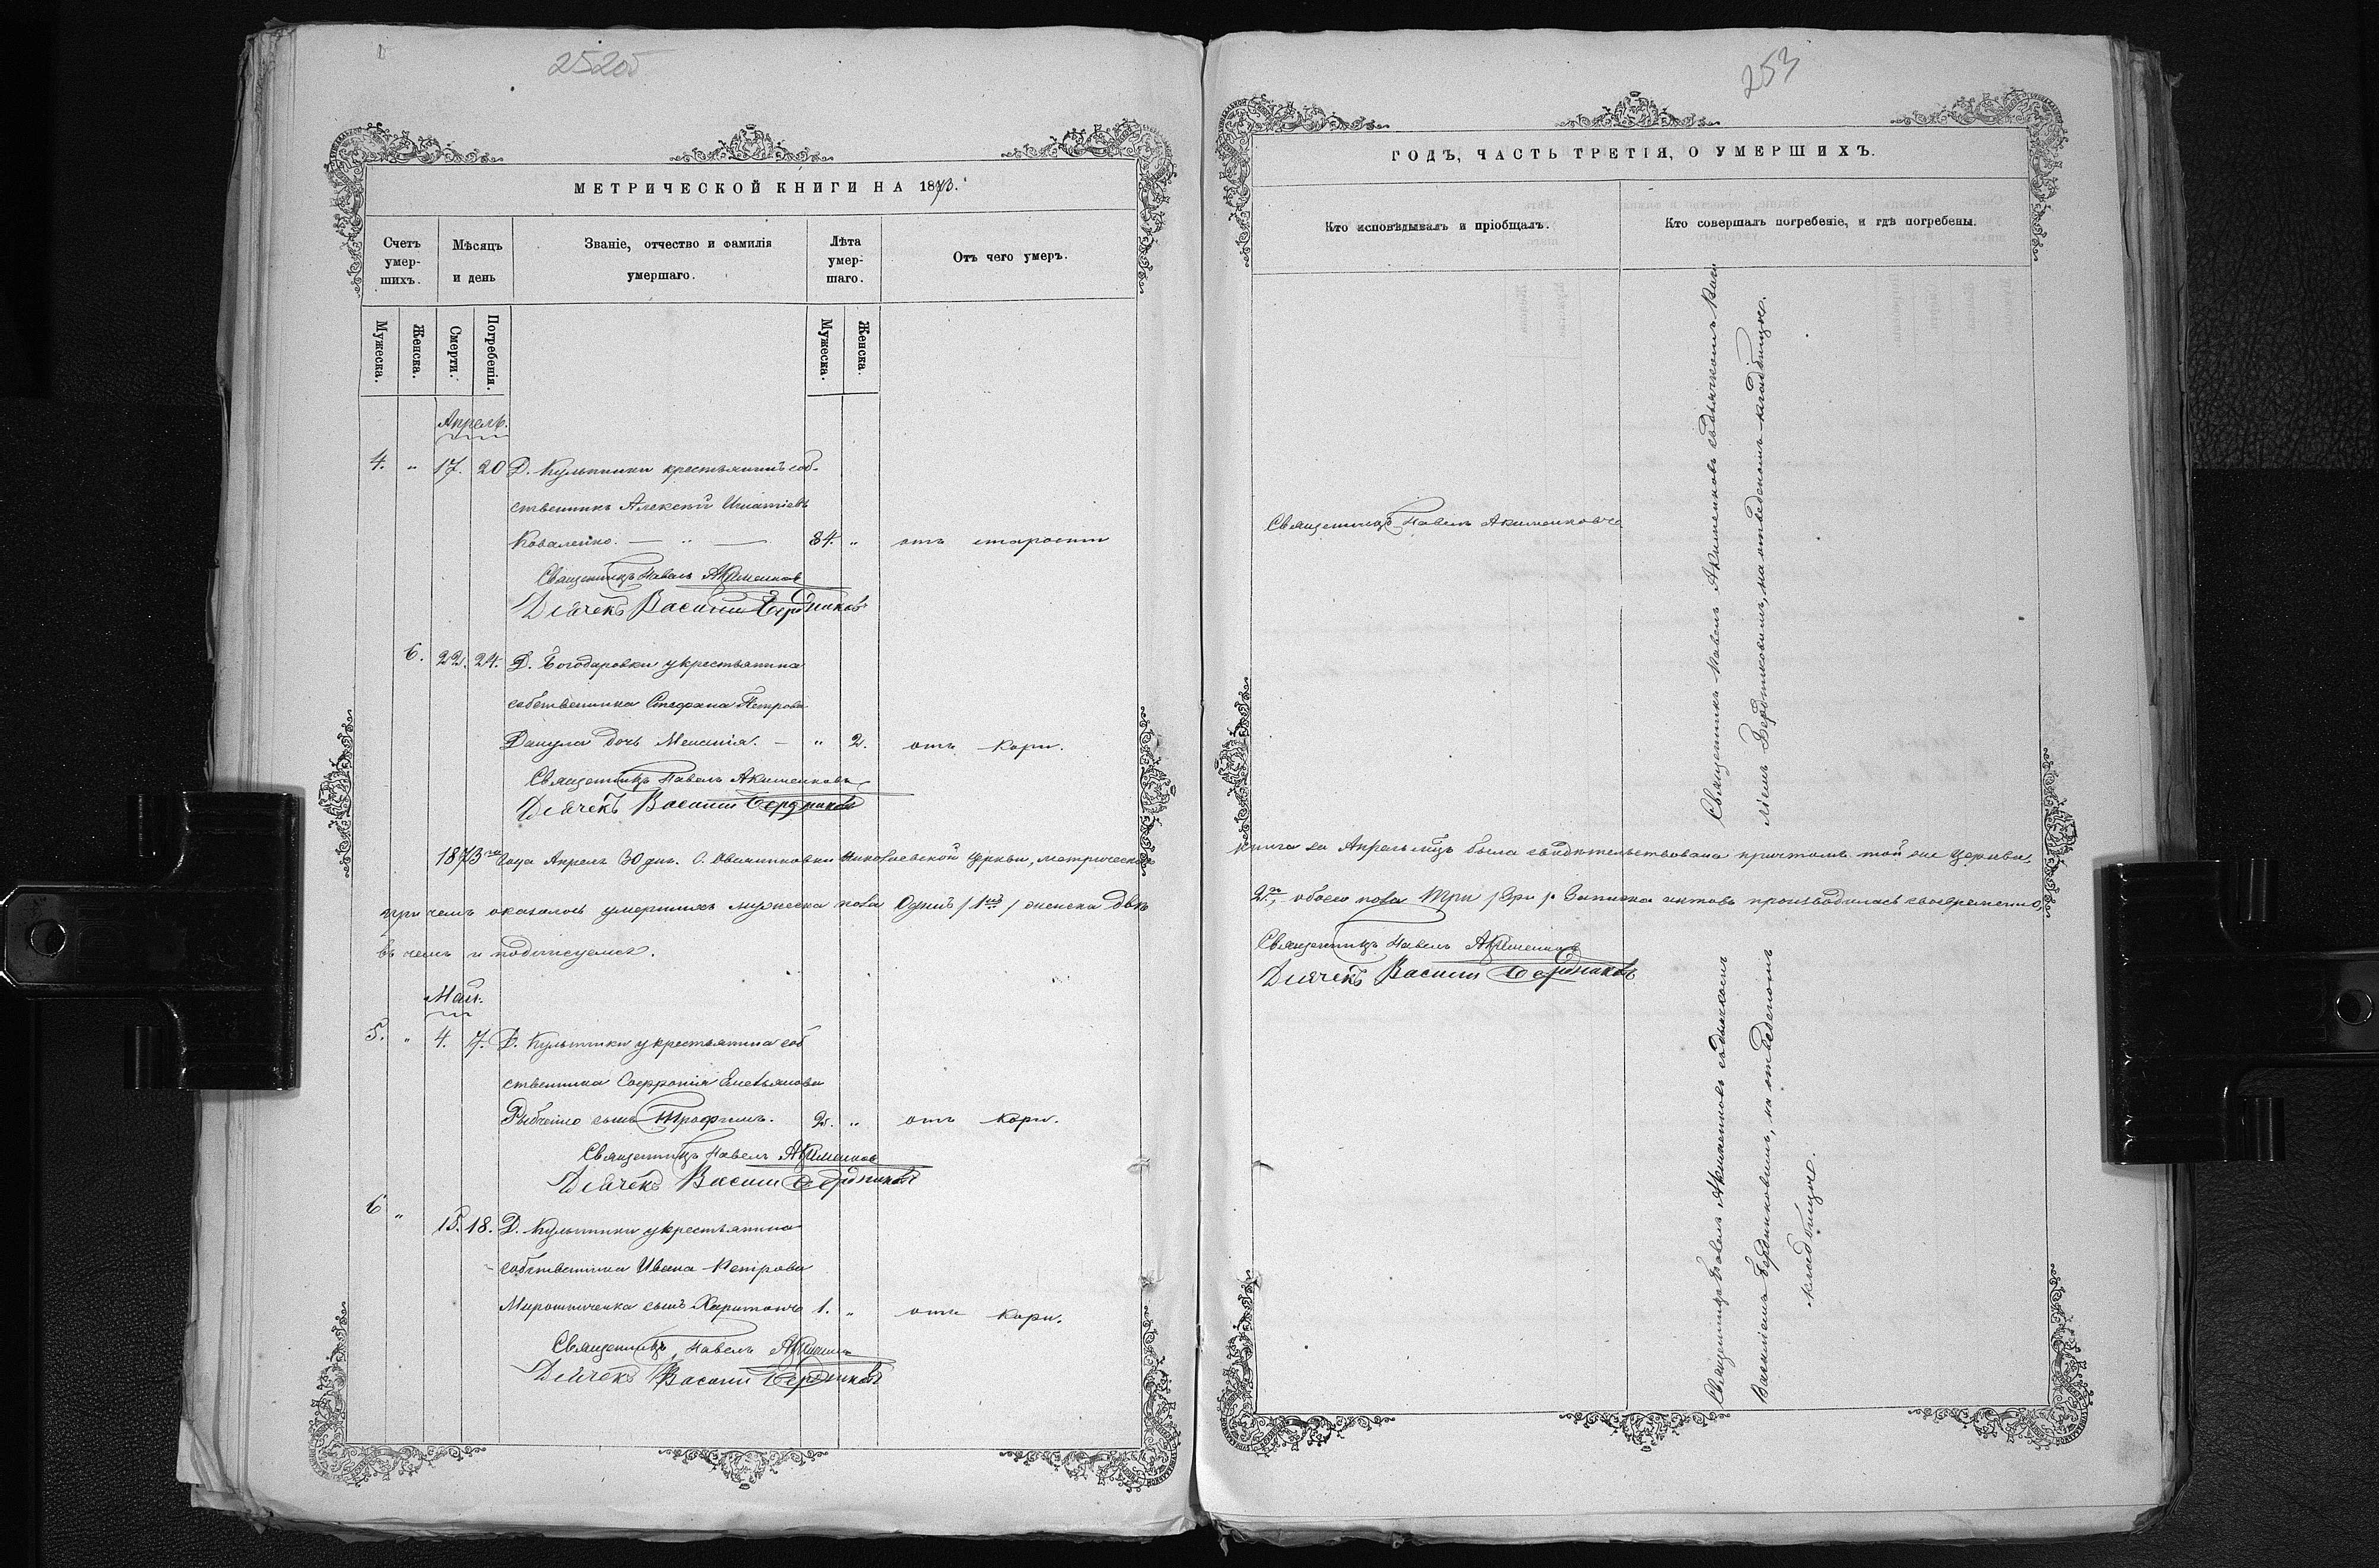 252об
МЕТРИЧЕСКОЙ КНИГИ НА 1873.
Счетъ умер-шихъ.
Мѣсяцъ и день
Званіе, отчество и фамилія умершаго.
Лѣта умер-шаго.
Отъ чего умеръ.
Мужеска.
Женска.
Смерти.
Погребенія.
Мужеска.
Женска.
Апрель.
4. „ 17. 20 Д. Кульпинки крестьянинъ соб-
ственникъ Алексѣй Игнатіевъ
Коваленко. — „ — 84. „ отъ старости
Священникъ Павелъ Акименковъ
Дьячекъ Василий Бердниковъ
6. 22. 24. Д. Богодаровки у крестьянина
собственника Стефана Петрова
Данула дочь Меланія. — „ 2. отъ кори.
Священникъ Павелъ Акименковъ
Дьячекъ Василий Бердниковъ
1873 года Апреля 30 дня. С. Николаевской Церкви, метрическая
при чемъ оказалось умершихъ мужеска пола Одинъ /1нъ/ женска двѣ
въ чемъ и подписуемся.
Май.
5. „ 4. 7. Д. Кульпинки у крестьянина соб
ственника Софронія Емельянова
сынъ Трофимъ. 2. „ отъ кори.
Священникъ Павелъ Акименковъ
Дьячекъ Василий Бердниковъ
6 „ 15. 18. Д. Кульпинки у крестьянина
собственника Ивана Петрова
Мирошниченка сынъ Харитонъ 1. „ отъ кори.
Священникъ Павелъ Акименковъ
Дьячекъ Василий Бердниковъ
253
ГОДЪ, ЧАСТЬ ТРЕТІЯ, О УМЕРШИХЪ.
Кто исповѣдывалъ и пріобщалъ.
Кто совершалъ погребеніе, и гдѣ погребены.
Священникъ Павелъ Акименковъ
Священникъ Павелъ Акименковъ съ дьячкомъ Васи
ліемъ Бердниковымъ, на отведенномъ кладбищѣ.
книга за Апрель мцъ была свидѣтельствована причтомъ той же Церкви,
2, обоего пола три /3ри/. Записка актовъ производилась своевременно,
Священникъ Павелъ Акименковъ
Дьячекъ Василий Бердниковъ
Священникъ Павелъ Акименковъ съ дьячкомъ
Василіемъ Бердниковымъ, на отведенномъ
кладбищѣ.